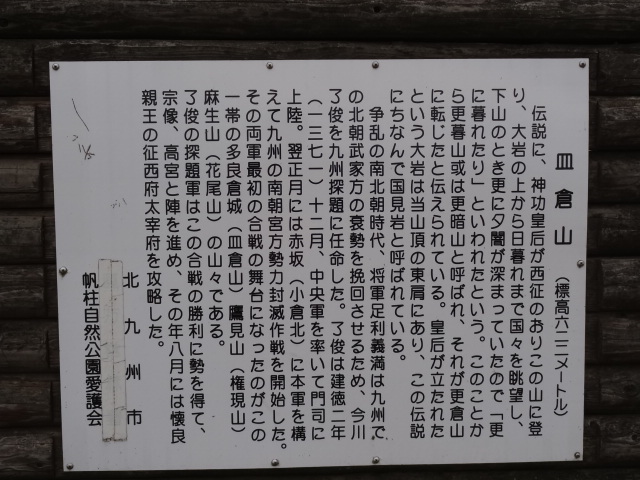 皿倉山（標高六二二メートル）
伝説に、神功皇后が西征のおりこの山に登
り、大岩の上から日暮れまで国々を眺望し、
下山のとき更に夕闇が深まっていたので「更
に暮れたり」といわれたという。このことか
ら更暮山或は更暗山と呼ばれ、それが更倉山
に転じたと伝えられている。皇后が立たれた
という大岩は当山頂の東肩にあり、この伝説
にちなんで国見岩と呼ばれている。
争乱の南北朝時代、将軍足利義満は九州で
の北朝武家方の衰勢を挽回させるため、今川
了俊を九州探題に任命した。了俊は建徳二年
（一三七一）十二月、中央軍を率いて門司に
上陸。翌正月には赤坂（小倉北）に本軍を構
えて九州の南朝宮方勢力封滅作戦を開始した。
その両軍最初の合戦の舞台になったのがこの
一帯の多良倉城（皿倉山）鷹見山（権現山）
麻生山（花尾山）の山々である。
了俊の探題軍はこの合戦の勝利に勢を得て、
宗像、高宮と陣を進め、その年八月には懐良
親王の征西府太宰府を攻略した。
北九州市
帆柱自然公園愛護会